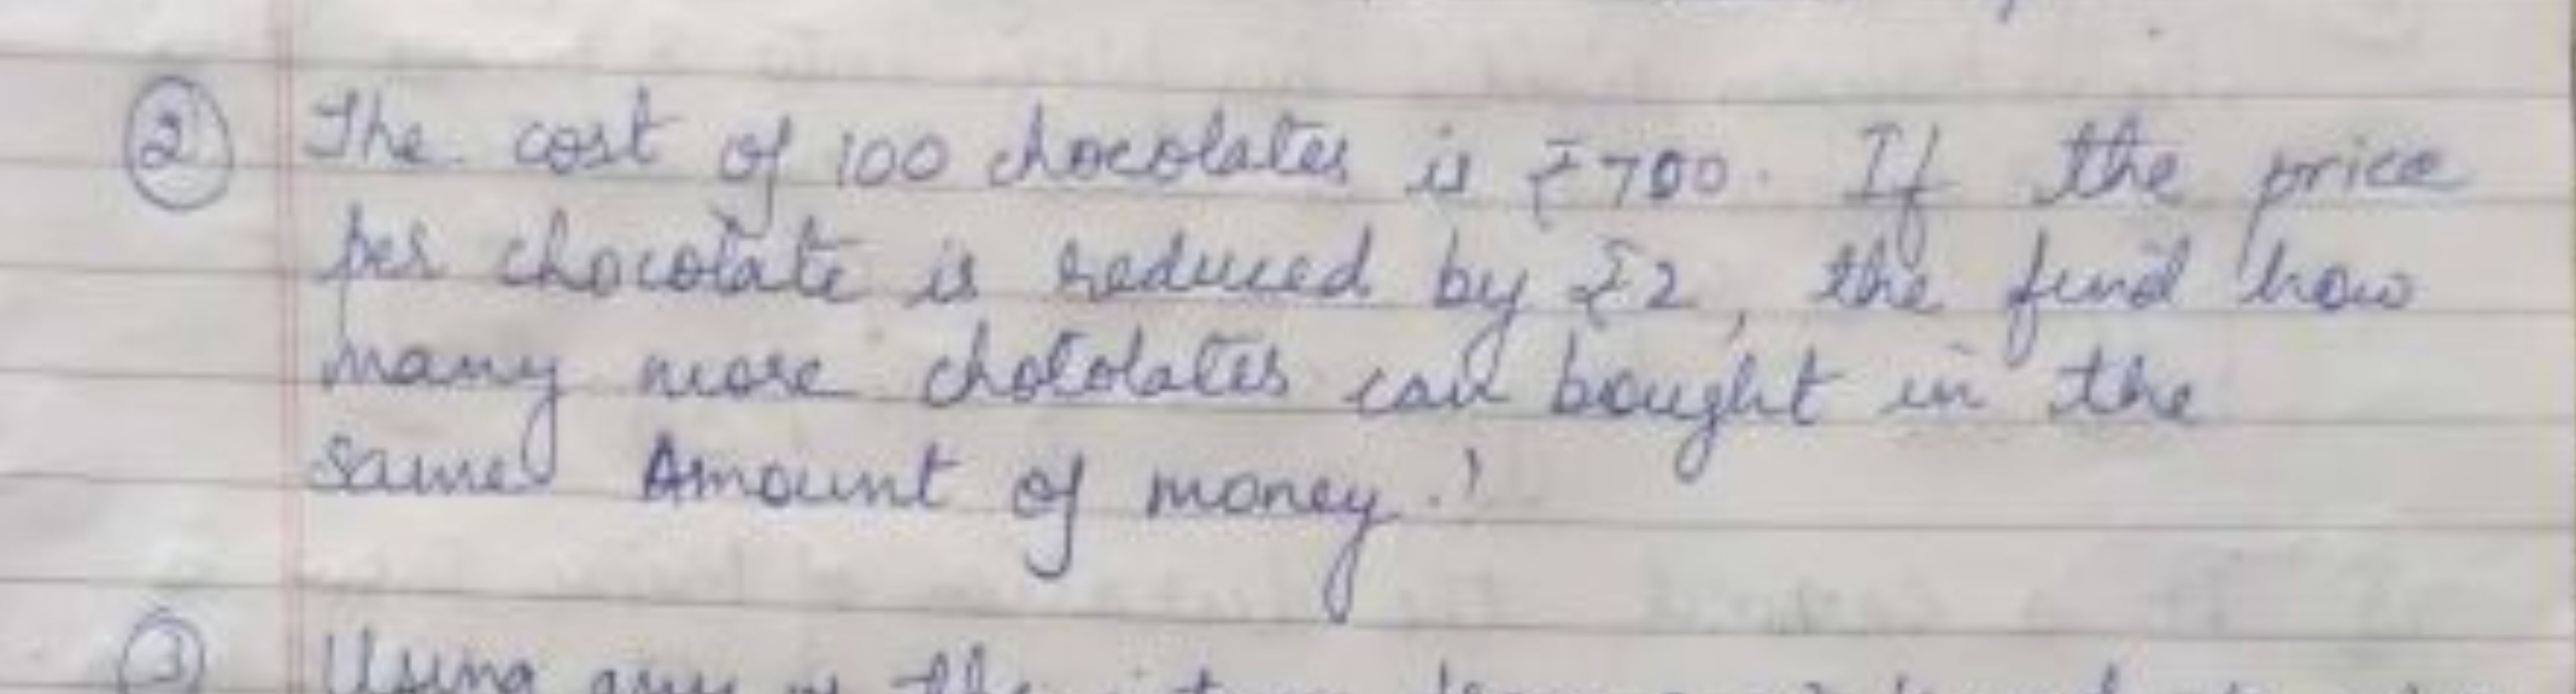 ② The cost of 100 chocolates is ₹700. If the price
per chocolate is reduced by ₹2, the find how
many more chotolates can bought in the
same Amount of money.?
③ Using any of the